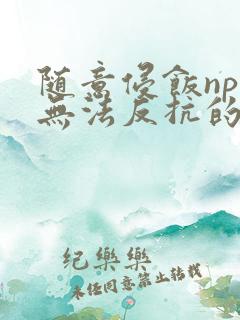 随意侵飯np
無法反抗的
纪樂樂
未任同意禁止转載